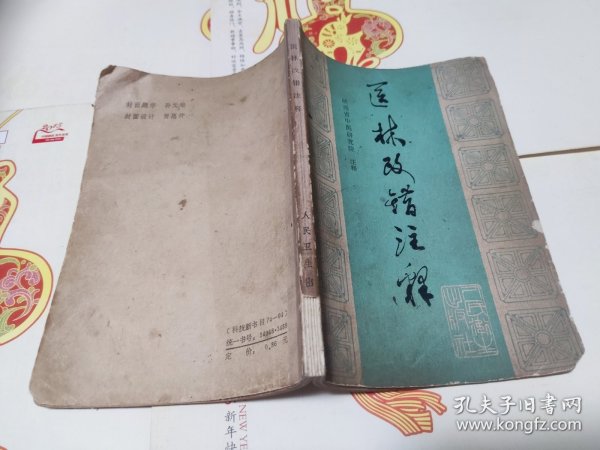 医林改错注释
陕西省中医研究院 注释
医林改错注释
人民卫生出版社
封面题字
封面设计
(科技新书目74—94)
统一书号:
定 价: 0.86 元
NEW YE
新年快
孔夫子旧书网
www.kongfz.com